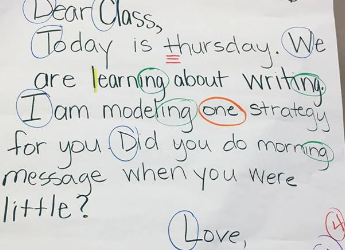 Dear Class,
Today is thursday. We
are learning about writing.
I am modeling one strategy
for you. Did you do morning
message when you were
little?
Love,
4